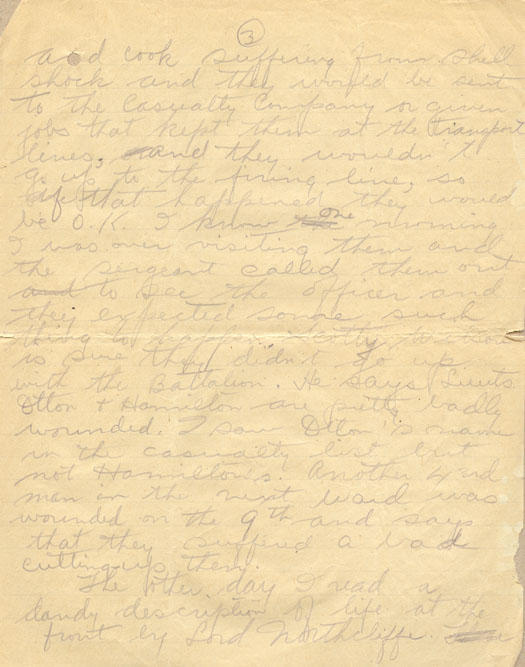 3
and cook suffering from shell
shock and they would be sent
to the Casualty Company or given
jobs that kept them at the transport
lines, and they wouldn't
go up to the firing line, so
if that happened they would
be O.K. I know one morning
I was over visiting them and
the sergeant called them out
and to see the officer and
they expected some such
thing to happen.
is sure they didn't go up
with the Battalion. He says Lieuts
Otton & Hamilton are pretty badly
wounded. I saw Otton's name
in the casualty list but
not Hamilton's. Another 43rd
man in the next ward was
wounded on the 9th and says
that they suffered a bad
cutting up then.
The other day I read a
dandy description of life at the
front by Lord Northcliffe.